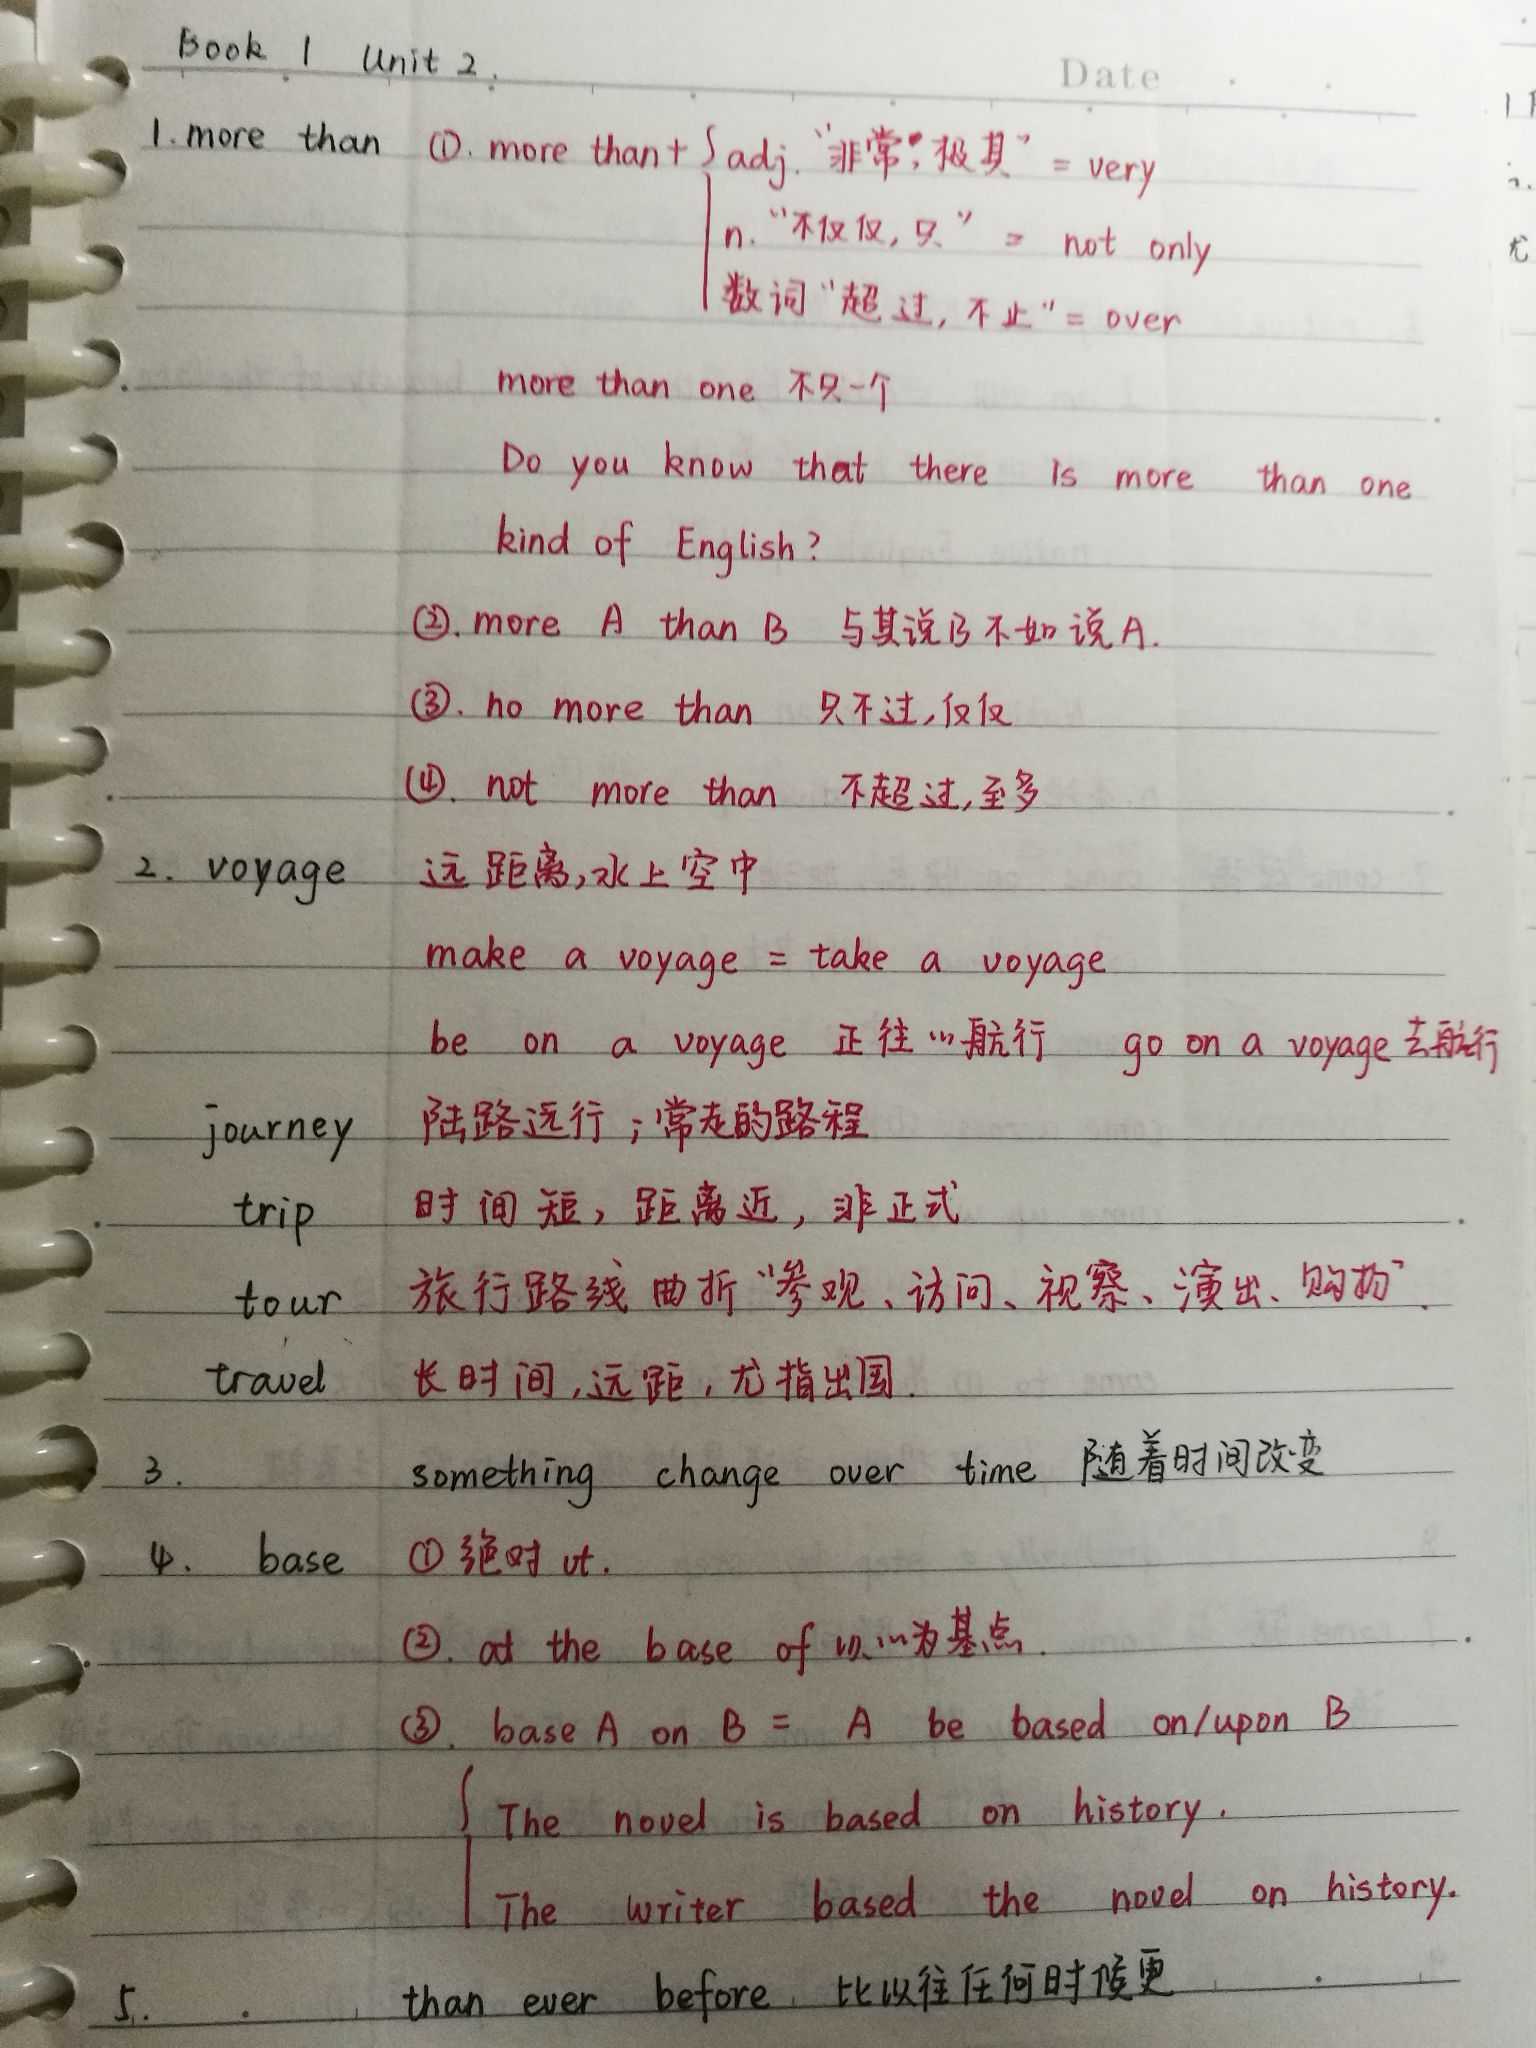 Book 1 Unit 2.
Date
1. more than ①. more than + { adj. "非常, 极其" = very
n. "不仅仅, 只" = not only
数词 "超过, 不止" = over
more than one 不只一个
Do you know that there is more than one
kind of English?
②. more A than B 与其说B不如说A.
③. no more than 只不过,仅仅
④. not more than 不超过,至多
2. voyage 远距离,水上空中
make a voyage = take a voyage
be on a voyage 正往…航行 go on a voyage 去航行
journey 陆路远行;常走的路程
trip 时间短, 距离近, 非正式
tour 旅行路线曲折 "参观、访问、视察、演出、购物".
travel 长时间,远距,尤指出国.
3. something change over time 随着时间改变
4. base ① 绝对 vt.
②. at the base of 以…为基点.
③. base A on B = A be based on/upon B
{ The novel is based on history.
The writer based the novel on history.
5. than ever before 比以往任何时候更